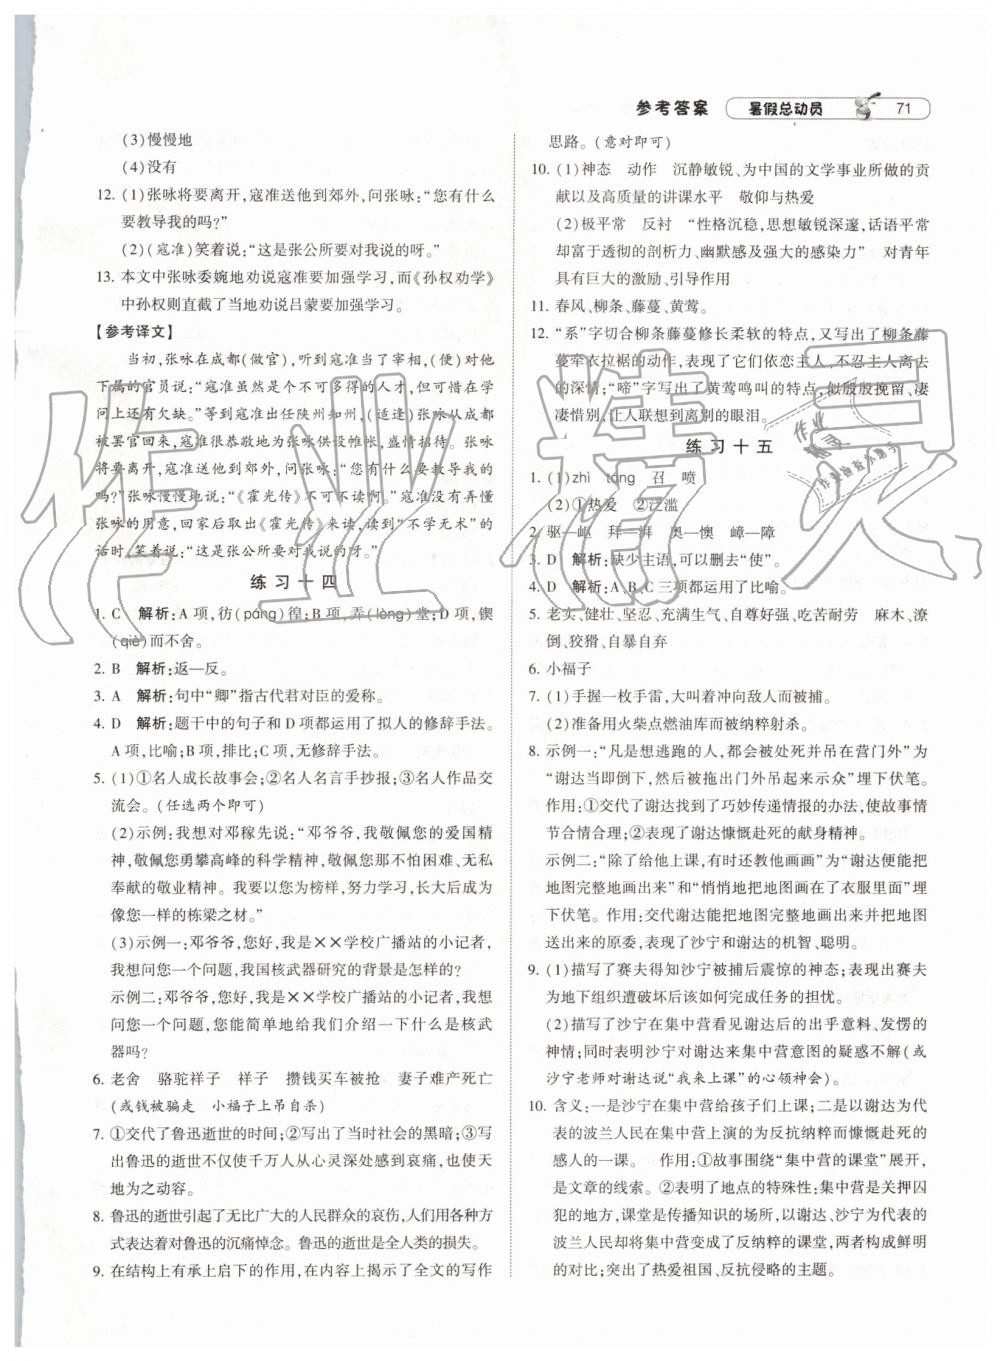 参考答案 暑假总动员 71
(3)慢慢地
(4)没有
12. (1)张咏将要离开,寇准送他到郊外,问张咏:“您有什么
要教导我的吗?”
(2)(寇准)笑着说:“这是张公所要对我说的呀。”
13. 本文中张咏委婉地劝说寇准要加强学习,而《孙权劝学》
中孙权则直截了当地劝说吕蒙要加强学习。
【参考译文】
当初,张咏在成都(做官),听到寇准当了宰相,(便)对他
下属的官员说:“寇准虽然是个不可多得的人才,但可惜在学
问上还有欠缺。”等到寇准出任陕州知州,(适逢)张咏从成都
被罢官回来,寇准很恭敬地为张咏供设帐帷,盛情招待。张咏
将要离开,寇准送他到郊外,问张咏:“您有什么要教导我的
吗?”张咏慢慢地说:“《霍光传》不可不读啊。”寇准没有弄懂
张咏的用意,回家后取出《霍光传》来读,读到“不学无术”的
话时,笑着说:“这是张公所要对我说的呀。”
练习十四
1. C 解析:A项,彷(páng)徨;B项,弄(lòng)堂;D项,锲
(qiè)而不舍。
2. B 解析:返—反。
3. A 解析:句中“卿”指古代君对臣的爱称。
4. D 解析:题干中的句子和D项都运用了拟人的修辞手法。
A项,比喻;B项,排比;C项,无修辞手法。
5. (1)①名人成长故事会;②名人名言手抄报;③名人作品交
流会。(任选两个即可)
(2)示例:我想对邓稼先说:“邓爷爷,我敬佩您的爱国精
神,敬佩您勇攀高峰的科学精神,敬佩您那不怕困难、无私
奉献的敬业精神。我要以您为榜样,努力学习,长大后成为
像您一样的栋梁之材。”
(3)示例一:邓爷爷,您好,我是××学校广播站的小记者,
我想问您一个问题,我国核武器研究的背景是怎样的?
示例二:邓爷爷,您好,我是××学校广播站的小记者,我想
问您一个问题,您能简单地给我们介绍一下什么是核武
器吗?
6. 老舍 骆驼祥子 祥子 攒钱买车被抢 妻子难产死亡
(或钱被骗走 小福子上吊自杀)
7. ①交代了鲁迅逝世的时间;②写出了当时社会的黑暗;③写
出鲁迅的逝世不仅使千万人从心灵深处感到哀痛,也使天
地为之动容。
8. 鲁迅的逝世引起了无比广大的人民群众的哀伤,人们用各种方
式表达着对鲁迅的沉痛悼念。鲁迅的逝世是全人类的损失。
9. 在结构上有承上启下的作用,在内容上揭示了全文的写作
思路。(意对即可)
10. (1)神态 动作 沉静敏锐、为中国的文学事业所做的贡
献以及高质量的讲课水平 敬仰与热爱
(2)极平常 反衬 “性格沉稳,思想敏锐深邃,话语平常
却富于透彻的剖析力、幽默感及强大的感染力” 对青年
具有巨大的激励、引导作用
11. 春风、柳条、藤蔓、黄莺。
12. “系”字切合柳条藤蔓修长柔软的特点,又写出了柳条藤
蔓牵衣拉裾的动作,表现了它们依恋主人,不忍主人离去
的深情;“啼”字写出了黄莺鸣叫的特点,似殷殷挽留、凄
凄惜别,让人联想到离别的眼泪。
练习十五
1. (1)zhì táng 召 喷
(2)①热爱 ②泛滥
2. 驱—岖 拜—湃 奥—懊 嶂—障
3. D 解析:缺少主语,可以删去“使”。
4. D 解析:A、B、C三项都运用了比喻。
5. 老实、健壮、坚忍、充满生气、自尊好强、吃苦耐劳 麻木、潦
倒、狡猾、自暴自弃
6. 小福子
7. (1)手握一枚手雷,大叫着冲向敌人而被捕。
(2)准备用火柴点燃油库而被纳粹射杀。
8. 示例一:“凡是想逃跑的人,都会被处死并吊在营门外”为
“谢达当即倒下,然后被拖出门外吊起来示众”埋下伏笔。
作用:①交代了谢达找到了巧妙传递情报的办法,使故事情
节合情合理;②表现了谢达慷慨赴死的献身精神。
示例二:“除了给他上课,有时还教他画画”为“谢达便能把
地图完整地画出来”和“悄悄地把地图画在了衣服里面”埋
下伏笔。作用:交代谢达能把地图完整地画出来并把地图
送出来的原委,表现沙宁和谢达的机智、聪明。
9. (1)描写了赛夫得知沙宁被捕后震惊的神态;表现出赛夫
为地下组织遭破坏后该如何完成任务的担忧。
(2)描写了沙宁在集中营看见谢达后的出乎意料、发愣的
神情;同时表明沙宁对谢达来集中营意图的疑惑不解(或
沙宁老师对谢达说“我来上课”的心领神会)。
10. 含义:一是沙宁在集中营给孩子们上课;二是以谢达为代
表的波兰人民在集中营上演的为反抗纳粹而慷慨赴死的
感人的一课。 作用:①故事围绕“集中营的课堂”展开,
是文章的线索。②表明了地点的特殊性:集中营是关押囚
犯的地方,课堂是传播知识的场所,以谢达为代表的
波兰人民却将集中营变成了反纳粹的课堂,两者构成鲜明
的对比;突出了热爱祖国、反抗侵略的主题。
作业精灵